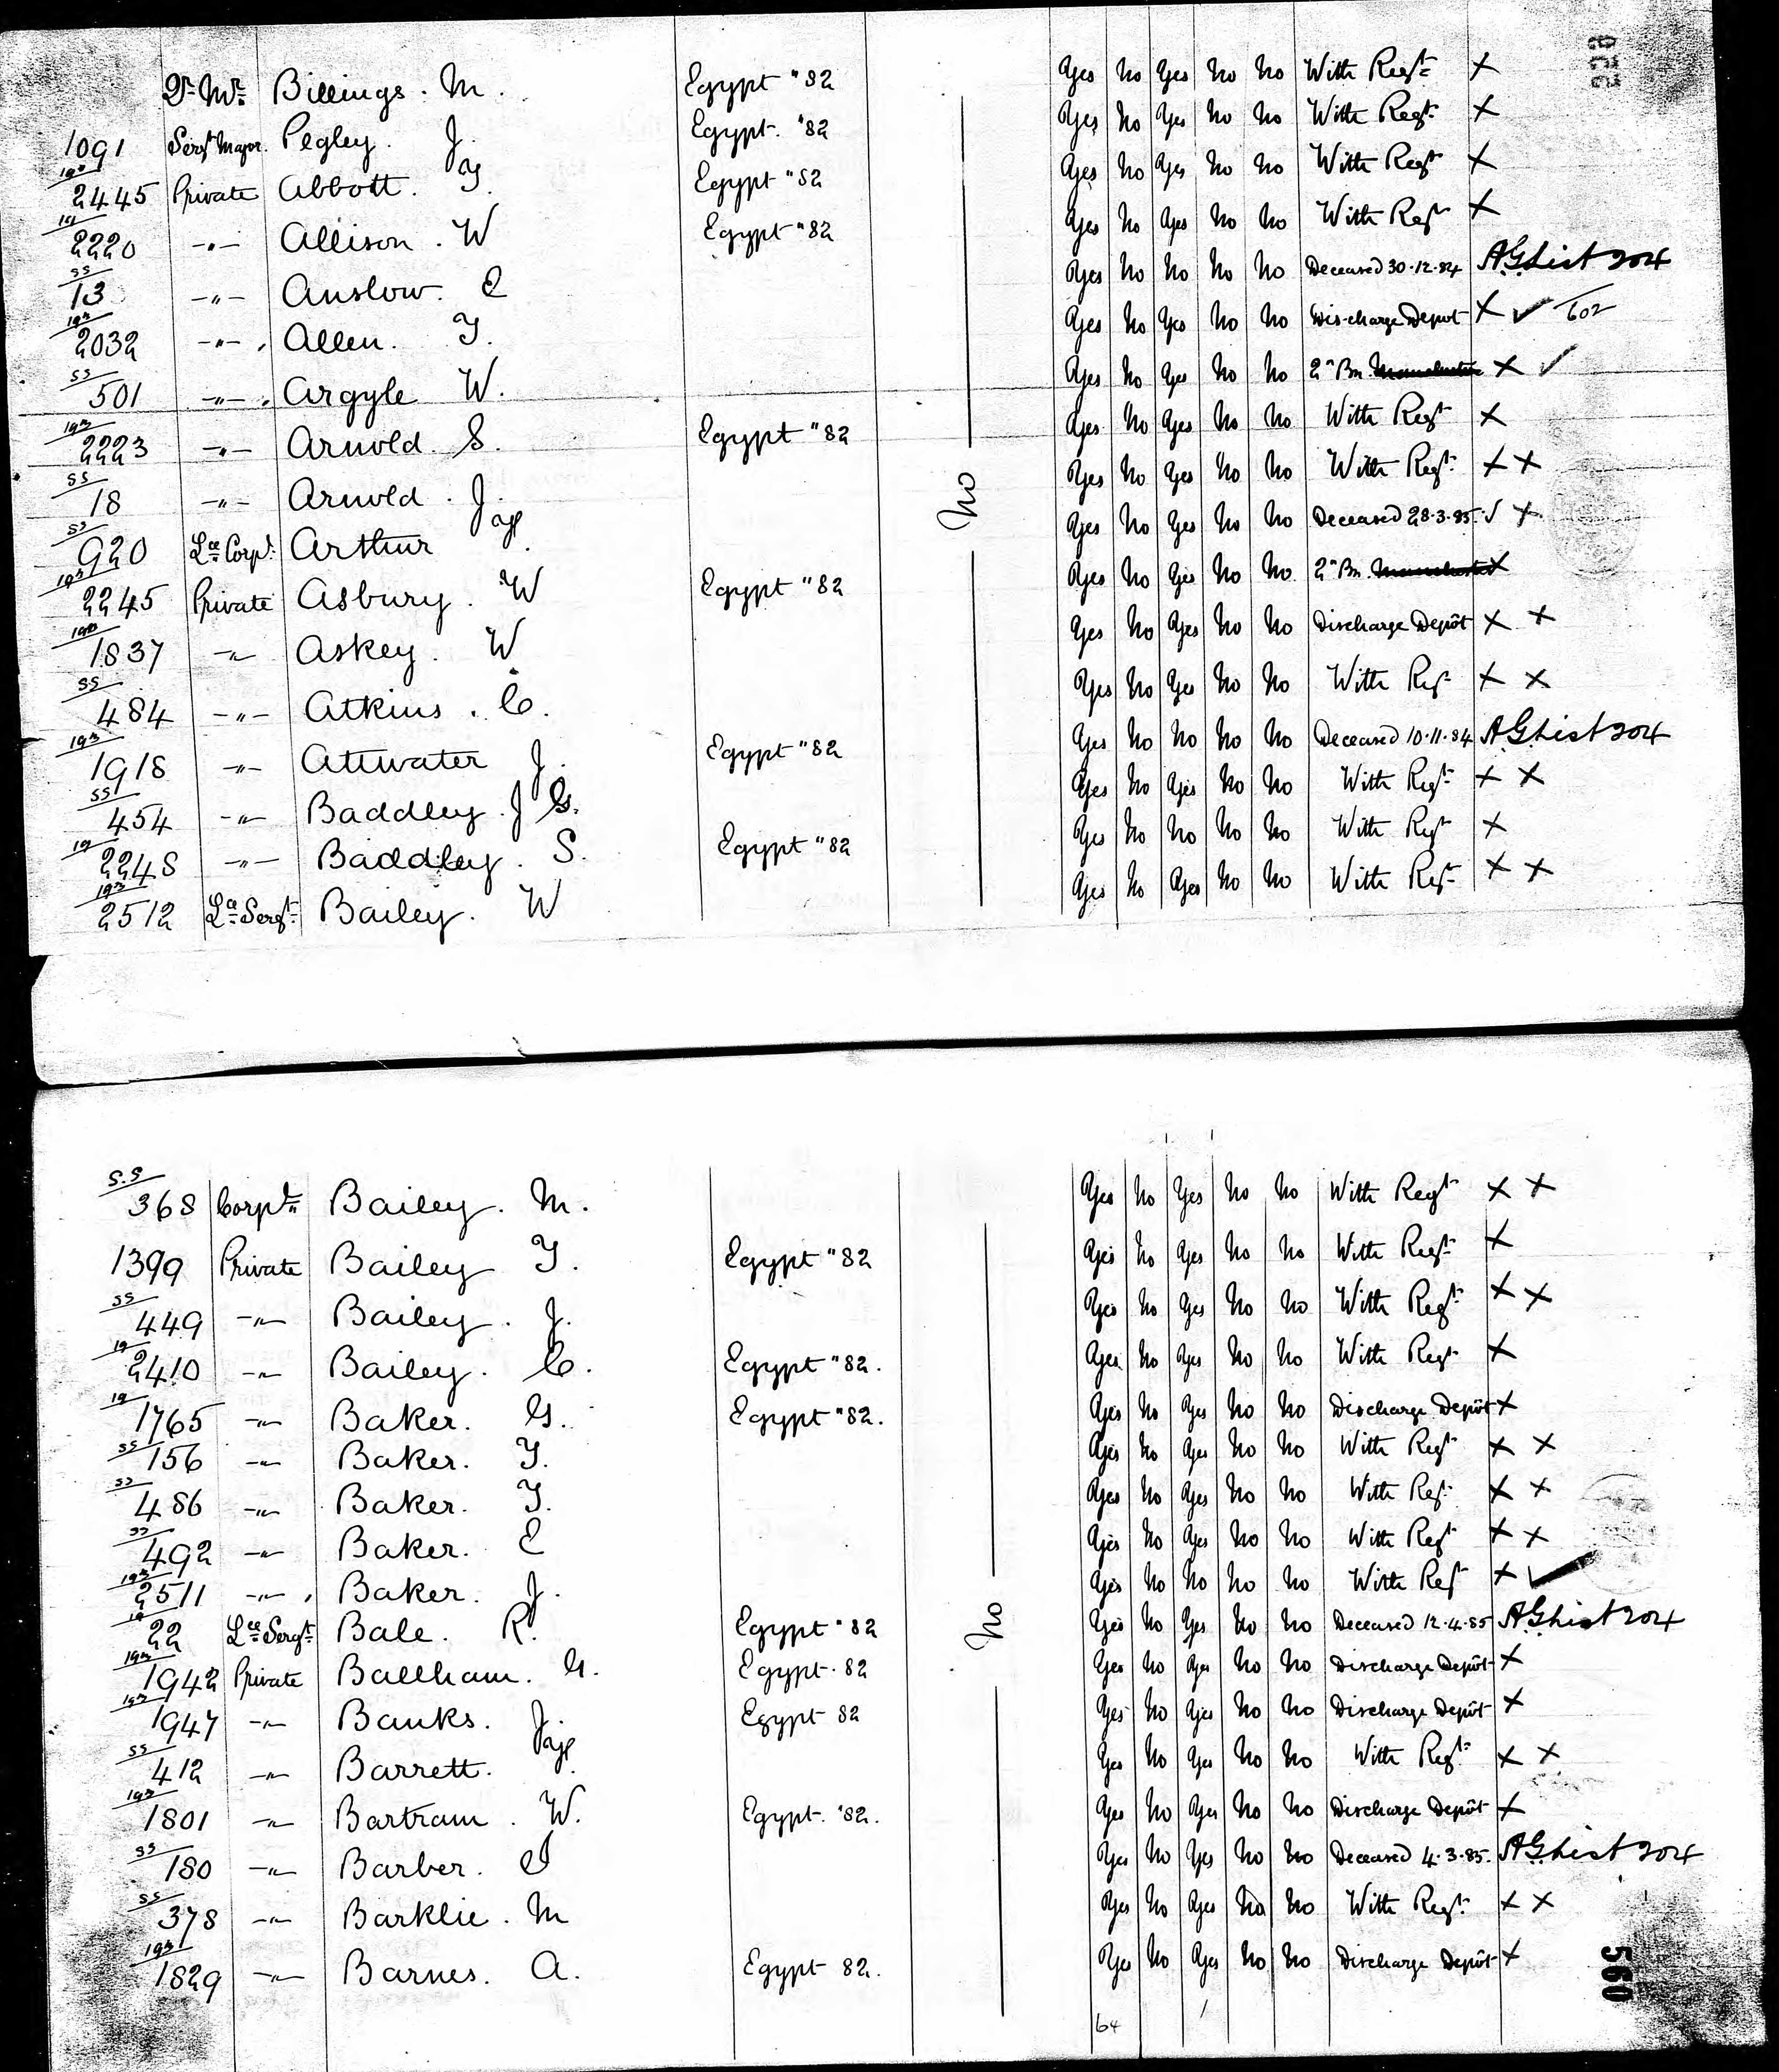 Qr Mr Billings. M. Egypt "82 Yes No Yes No No With Regt X
1091 Sergt Major. Pegley. J. Egypt. "82 Yes No Yes No No With Regt X
19th 2445 Private Abbott. T. Egypt "82 Yes No Yes No No With Regt X
19th 2220 -"- Allison. W Egypt "82 Yes No Yes No No With Regt X
SS 13 -"- Anslow. E Yes No No No No Deceased 30.12.84 AG List 204
19th 2032 -"- Allen. T. Yes No Yes No No Discharge Depot X ✓ T02
SS 501 -"- Argyle W. Yes No Yes No No 2n Bn. X ✓
19th 2223 -"- Arnold. S. Egypt "82 Yes No Yes No No With Regt X
No
SS 18 -"- Arnold. J. Yes No Yes No No With Regt X X
SS 920 Lce Corpl. Arthur Yes No Yes No No Deceased 28.3.85. ✓ X
19th 2245 Private Asbury. W Egypt "82 Yes No Yes No No 2n Bn. X
19th 1837 -"- Askey. W Yes No Yes No No Discharge Depôt X X
SS 484 -"- Atkins. C. Yes No Yes No No With Regt X X
19th 1918 -"- Attwater J. Egypt "82 Yes No No No No Deceased 10.11.84 AG List 204
SS 454 -"- Baddley. J G. Yes No Yes No No With Regt X X
19 2248 -"- Baddley. S. Egypt "82 Yes No No No No With Regt X
19th 2512 Lce Sergt Bailey. W Yes No Yes No No With Regt X X
S.S 368 Corpl Bailey. M. Yes No Yes No No With Regt X X
1399 Private Bailey T. Egypt "82 Yes No Yes No No With Regt X
SS 449 -"- Bailey. J. Yes No Yes No No With Regt X X
19 2410 -"- Bailey. C. Egypt "82. Yes No Yes No No With Regt X
19 1765 -"- Baker. G. Egypt "82. Yes No Yes No No Discharge Depôt X
SS 156 -"- Baker. T. Yes No Yes No No With Regt X X
SS 486 -"- Baker. T. Yes No Yes No No With Regt X X
SS 492 -"- Baker. E Yes No Yes No No With Regt X X
19th 2511 -"- Baker. J. Yes No No No No With Regt X ✓
No
19 22 Lce Sergt Bale. R. Egypt "82 Yes No Yes No No Deceased 12.4.85 AG List 204
19th 1942 Private Ballham. G. Egypt. 82 Yes No Yes No No Discharge Depôt X
19th 1947 -"- Banks. J. Egypt 82 Yes No Yes No No Discharge Depôt X
SS 412 -"- Barrett. Yes No Yes No No With Regt X X
19th 1801 -"- Bartram. W. Egypt. "82. Yes No Yes No No Discharge Depôt X
SS 180 -"- Barber. Yes No Yes No No Deceased 4.3.85. AG List 204
SS 378 -"- Barklie. M Yes No Yes No No With Regt X X
19th 1829 -"- Barnes. A. Egypt 82. Yes No Yes No No Discharge Depôt X
560
64